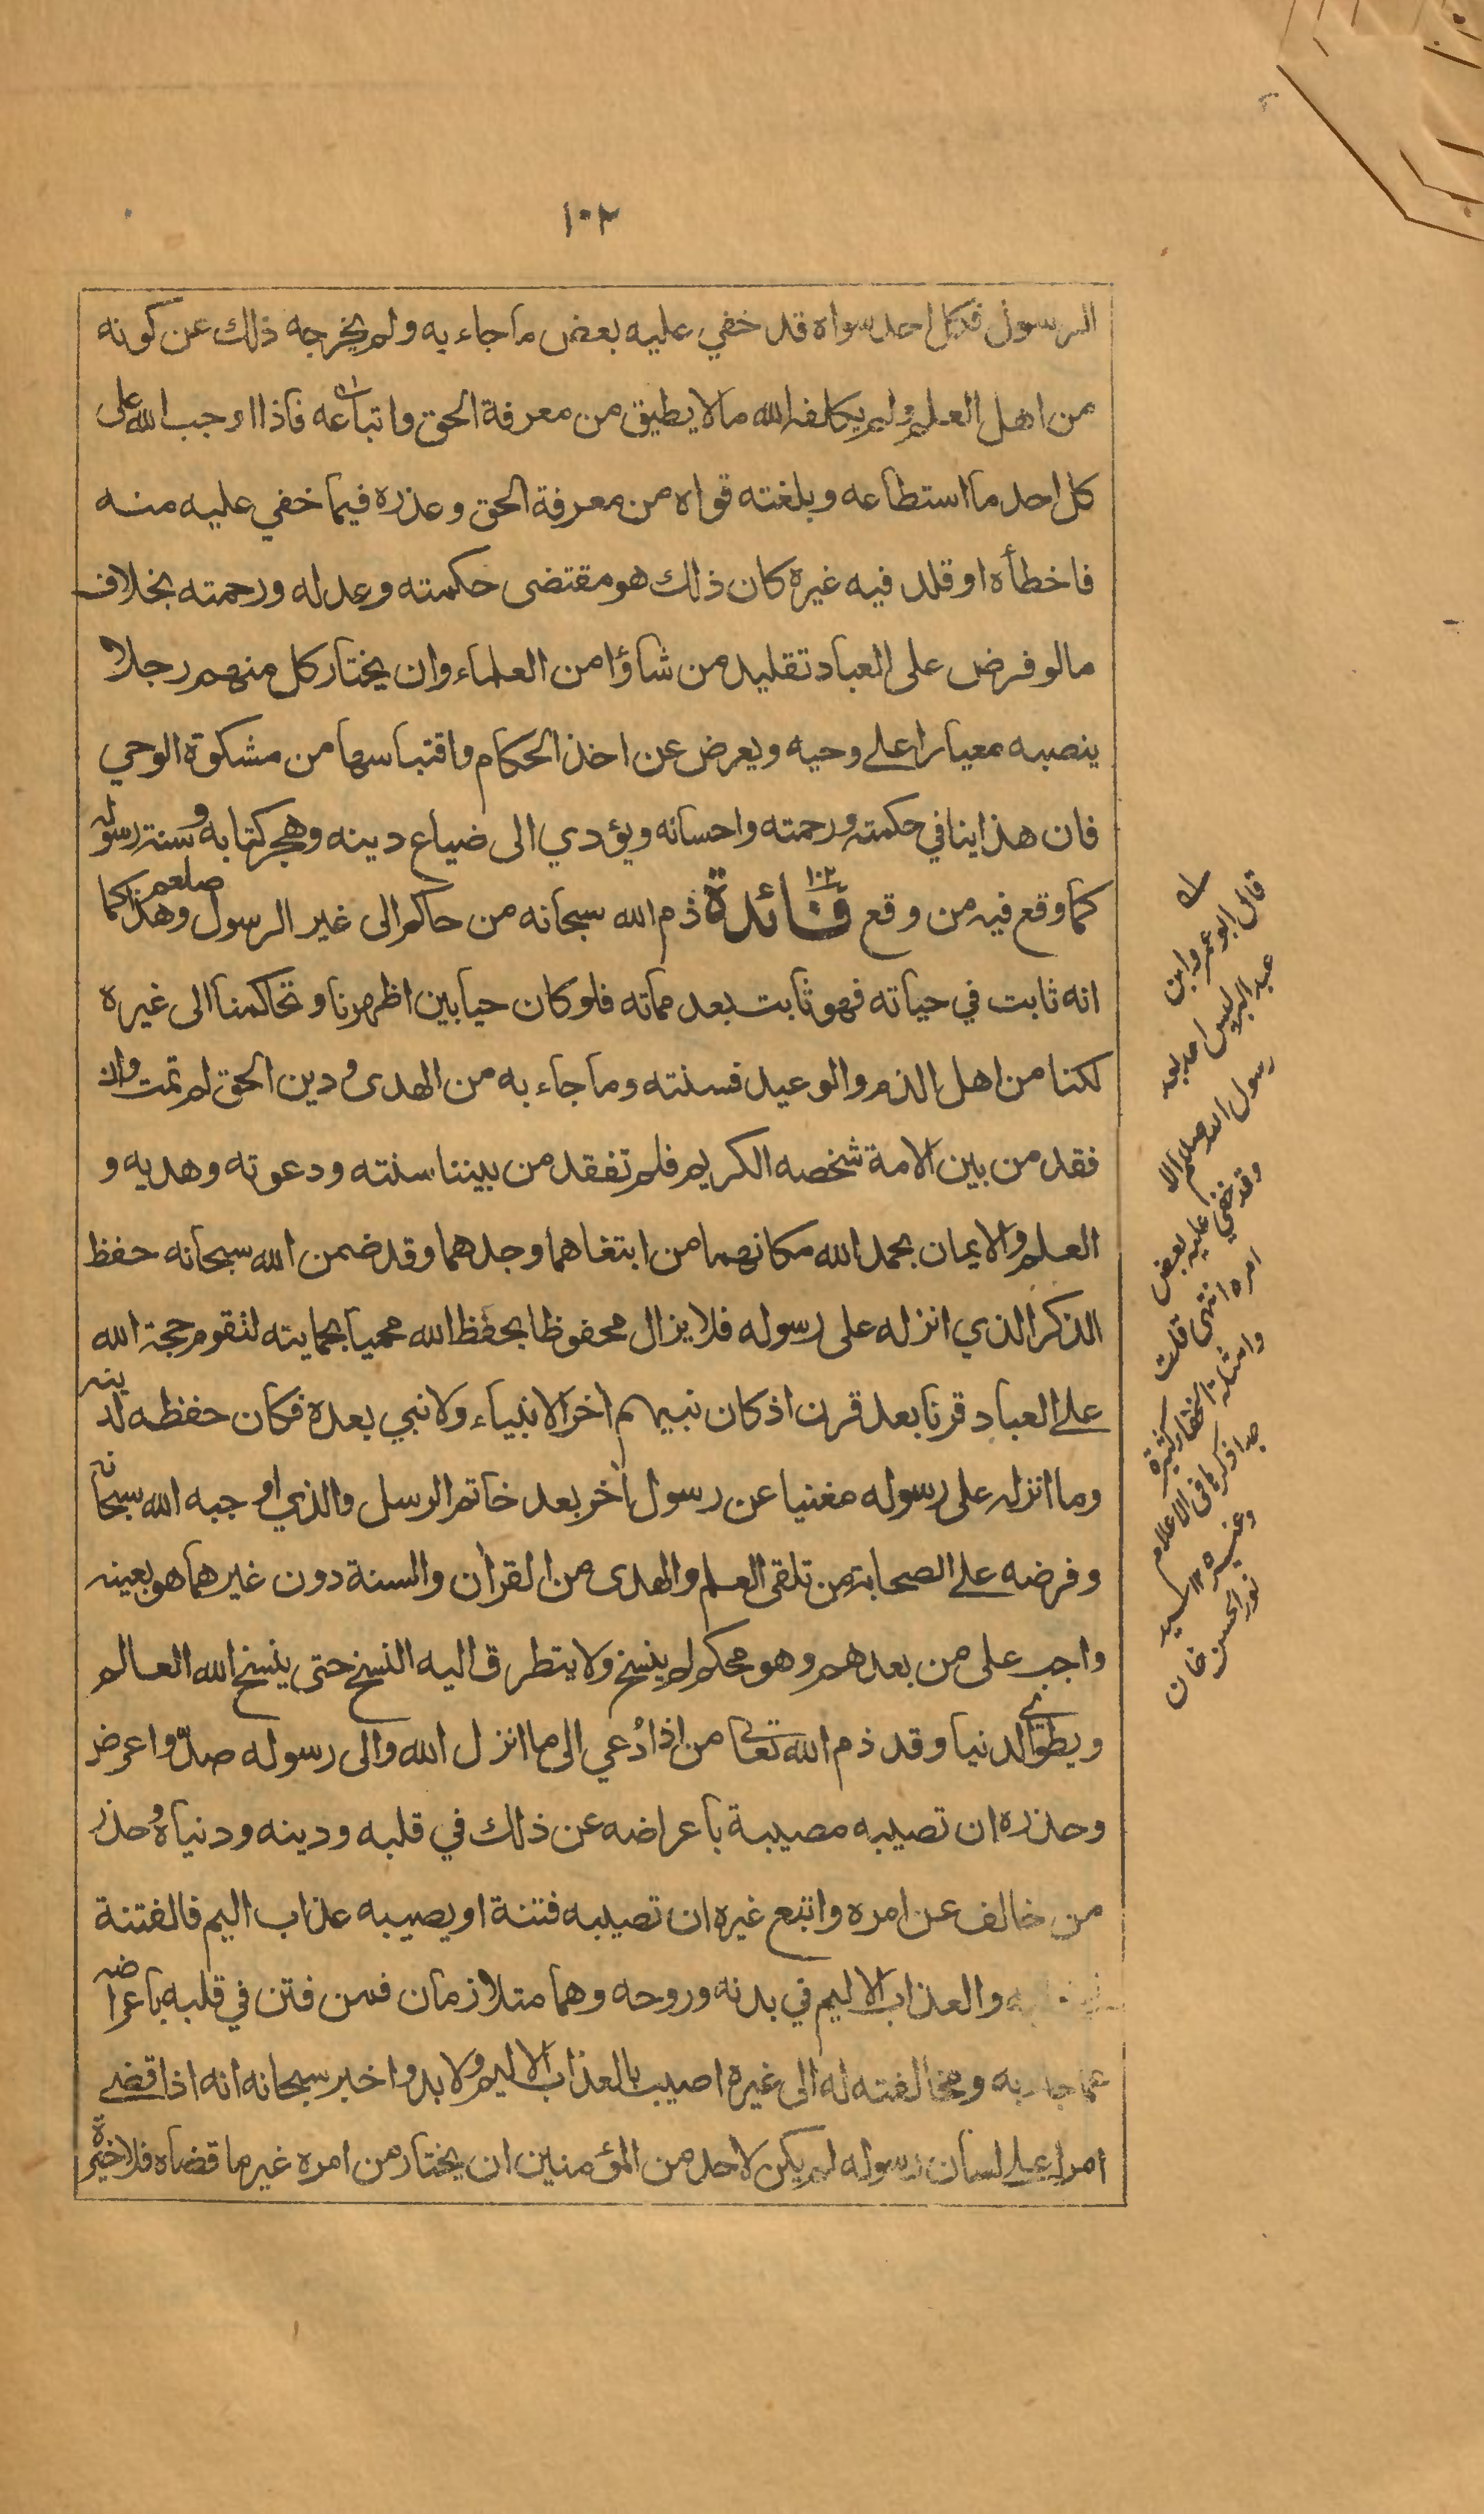 ١٠٢
الرسول فكل احد سواه قد خفي عليه بعض ما جاء به ولم يخرجه ذلك عن كونه
من اهل العلم ولم يكلفه الله ما لا يطيق من معرفة الحق واتباعه فاذا اوجب الله على
كل احد ما استطاعه وبلغته قواه من معرفة الحق وعذره فيما خفي عليه منه
فاخطأه او قلد فيه غيره كان ذلك هو مقتضى حكمته وعدله ورحمته بخلاف
ما لو فرض على العباد تقليد من شاؤا من العلماء وان يختار كل منهم رجلا
ينصبه معيارا على وحيه ويعرض عن اخذ الحكام واقتباسها من مشكوة الوحي
فان هذا ينافي حكمته ورحمته واحسانه ويؤدي الى ضياع دينه وهجر كتابه وسنة رسوله
صلعم
كما وقع فيه من وقع فائدة ١٠٢ ذم الله سبحانه من حاكم الى غير الرسول وهذا كما
انه ثابت في حياته فهو ثابت بعد مماته فلو كان حيا بين اظهرنا وتحاكمنا الى غيره
لكنا من اهل الذم والوعيد فسنته وما جاء به من الهدى ودين الحق لم تمت وان
فقد من بين الامة شخصه الكريم فلم تفقد من بيننا سنته ودعوته وهديه و
العلم والايمان بحمد الله مكانهما من ابتغاهما وجدهما وقد ضمن الله سبحانه حفظ
الذكر الذي انزله على رسوله فلا يزال محفوظا بحفظ الله محميا بحمايته لتقوم حجة الله
على العباد قرنا بعد قرن اذ كان نبيهم اخر الانبياء ولا نبي بعده فكان حفظه لدينه
وما انزله على رسوله مغنيا عن رسول اخر بعد خاتم الرسل والذي اوجبه الله سبحانه
وفرضه على الصحابة من تلقى العلم والهدى من القران والسنة دون غيرهما هو بعينه
واجب على من بعدهم وهو محكم لم ينسخ ولا يتطرق اليه النسخ حتى ينسخ الله العالم
ويطوي الدنيا وقد ذم الله تعالى من اذا دُعي الى ما انزل الله والى رسوله صدّ واعرض
وحذره ان تصيبه مصيبة باعراضه عن ذلك في قلبه ودينه ودنياه وحذر
من خالف عن امره واتبع غيره ان تصيبه فتنة او يصيبه عذاب اليم فالفتنة
والعذاب الاليم في بدنه وروحه وهما متلازمان فمن فتن في قلبه باعراضه
عما جاء به ومخالفته له الى غيره اصيب بالعذاب الاليم ولا بد واخبر سبحانه انه اذا قضى
امرا على لسان رسوله لم يكن لاحد من المؤمنين ان يختار من امره غير ما قضاه فلا خيرة
قال ابو عمرو ابن
عبد البر ليس احد بعد
رسول الله صلعم الا
وقد خفي عليه بعض
امره انتهى قلت
وامثلة الخفاء كثيرة
جدا ذكرها في الاعلام
وغيره ١٢ سيد
نور الحسن خان